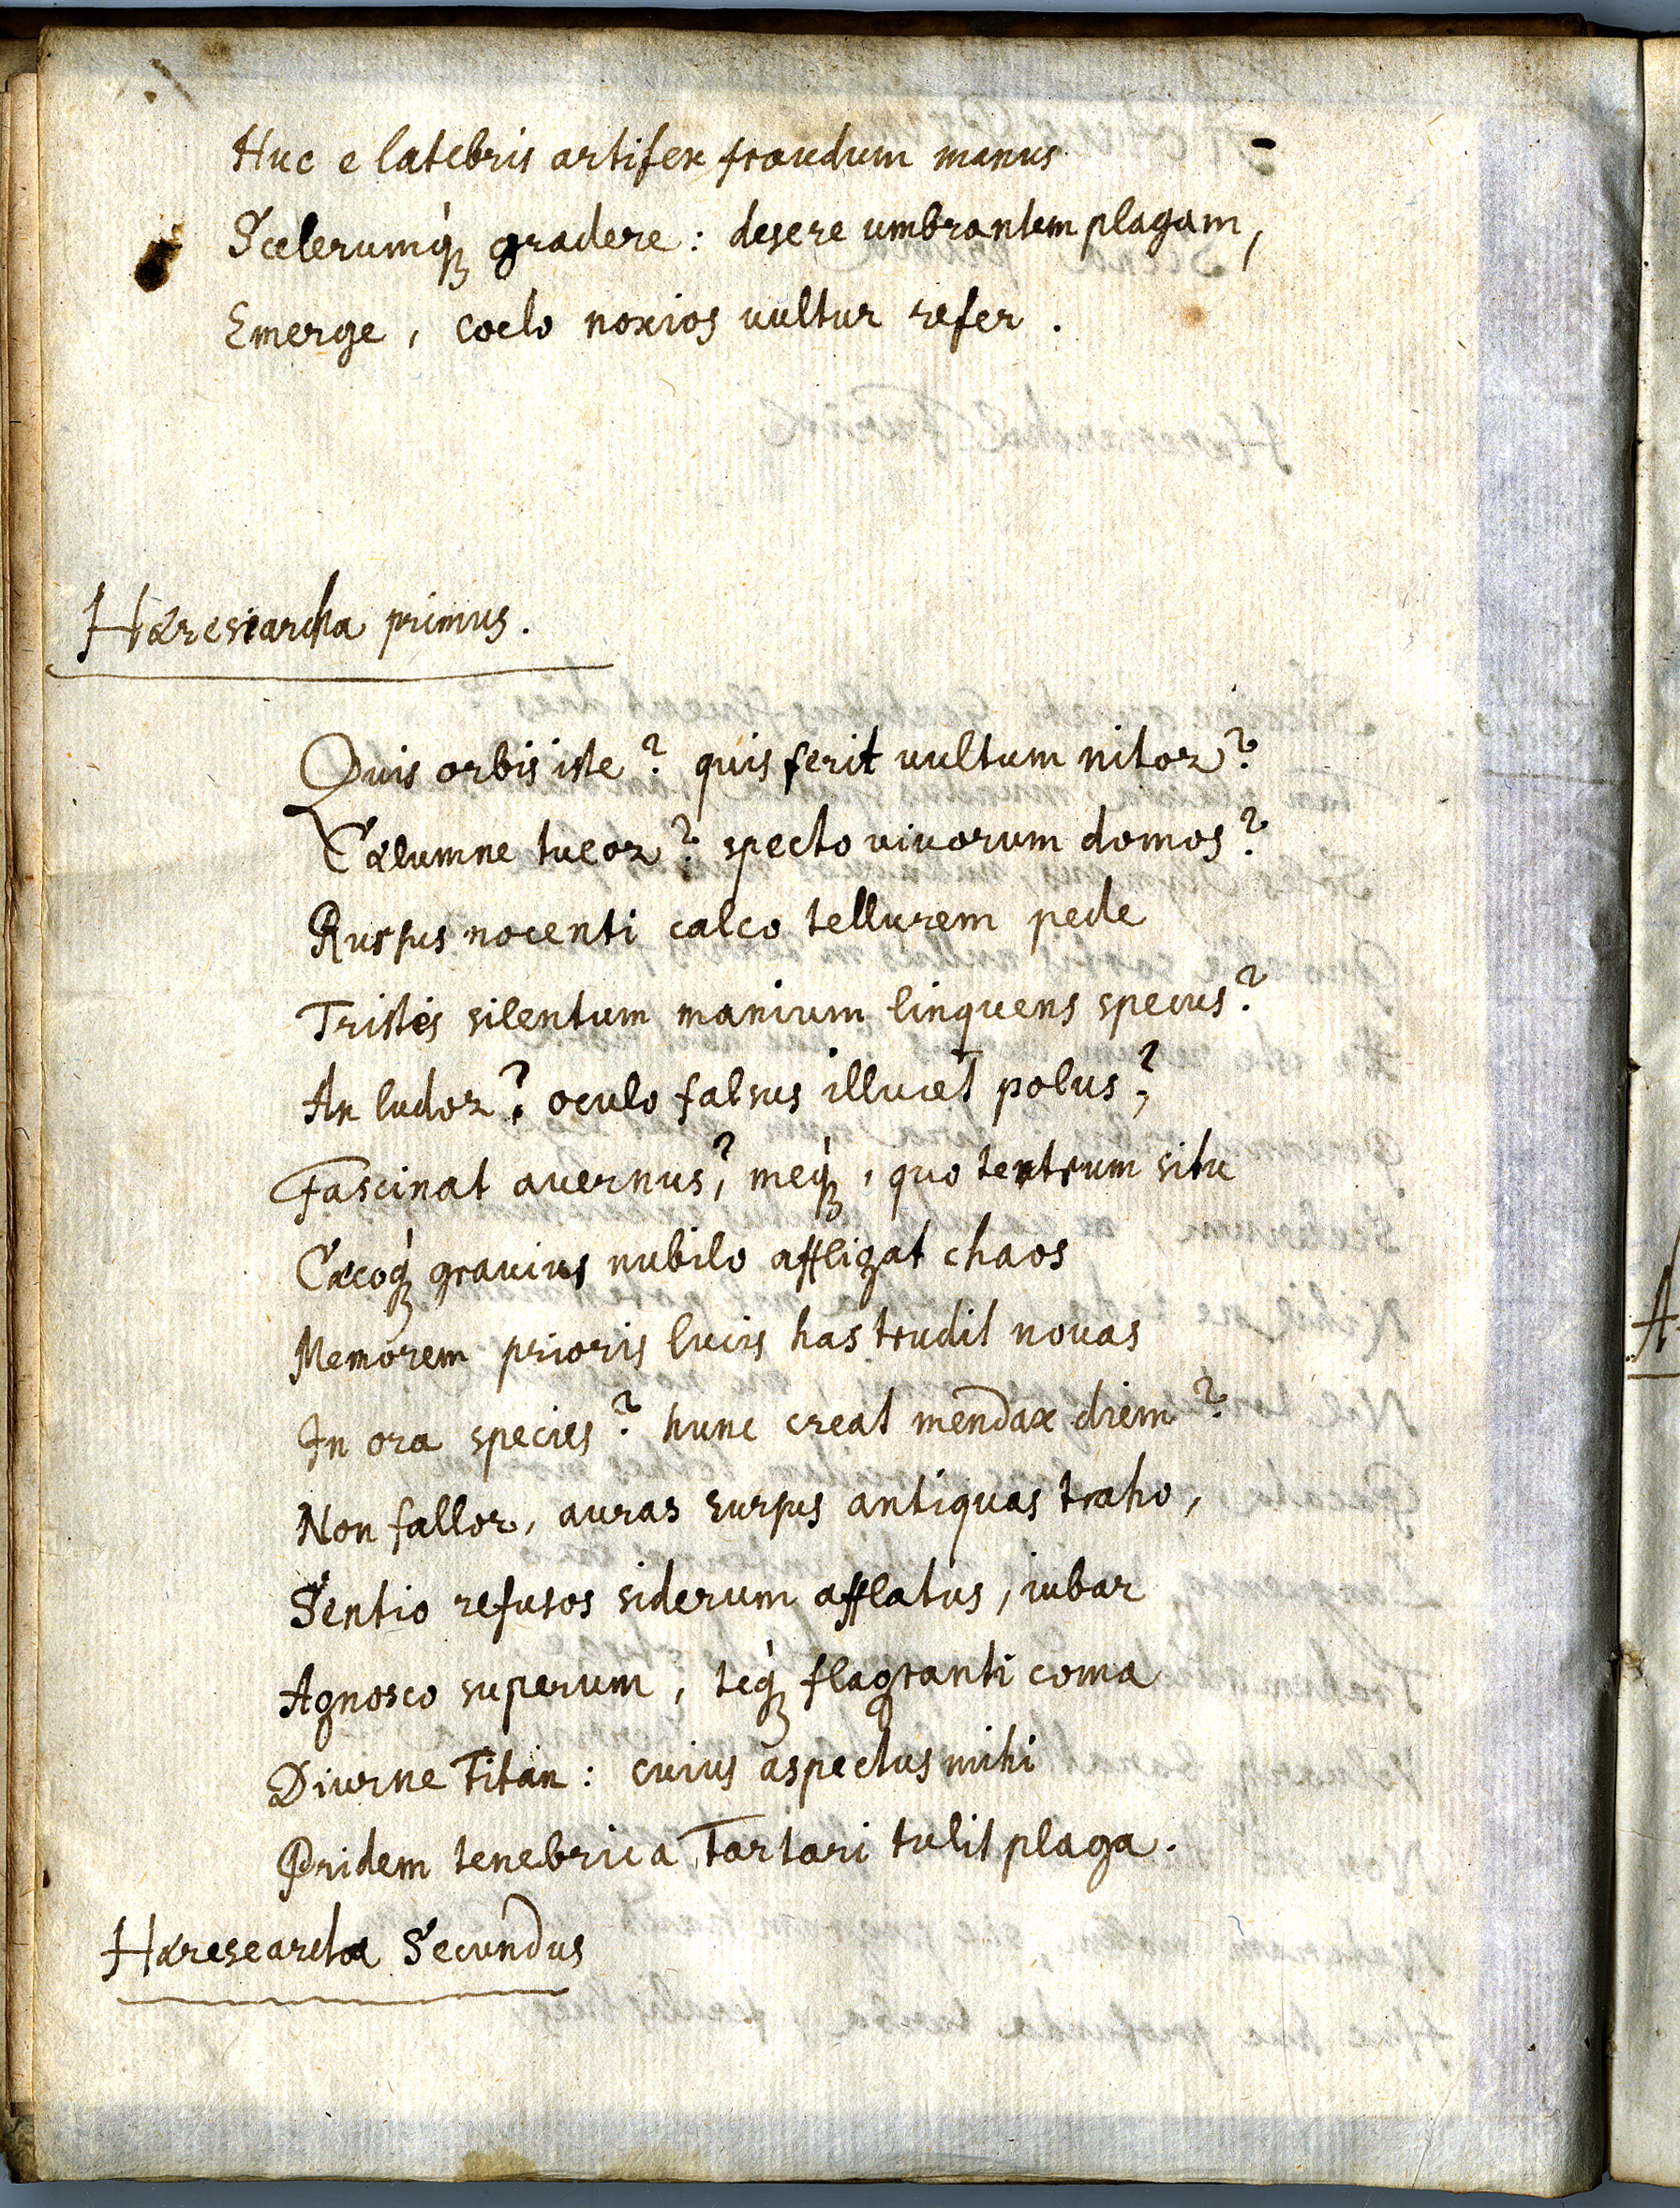 Huc e latebris artifex fraudum manus
Scelerumq́ꝫ gradere: desere umbrantem plagam,
Emerge, coelo noxios uultus refer.
Hæresiarcha primus.
Quis orbis iste? quis ferit uultum nitor?
Cælumne tueor? specto uiuorum domos?
Rursus nocenti calco tellurem pede
Tristes silentum manium linquens specus?
An ludor? oculo falsus illucet polus?
Fascinat auernus? meq́ꝫ, quo tentrum situ
Cæcoq́ꝫ grauius nubilo affligat chaos
Memorem prioris lucis has trudit nouas
In ora species? hunc creat mendax diem?
Non fallor, auras rursus antiquas traho,
Sentio refusos siderum afflatus, iubar
Agnosco superum, teq́ꝫ flagranti coma
Diurne Titan: cuius aspectus mihi
Pridem tenebrica Tartari tulit plaga.
Hæresearcha Secundus